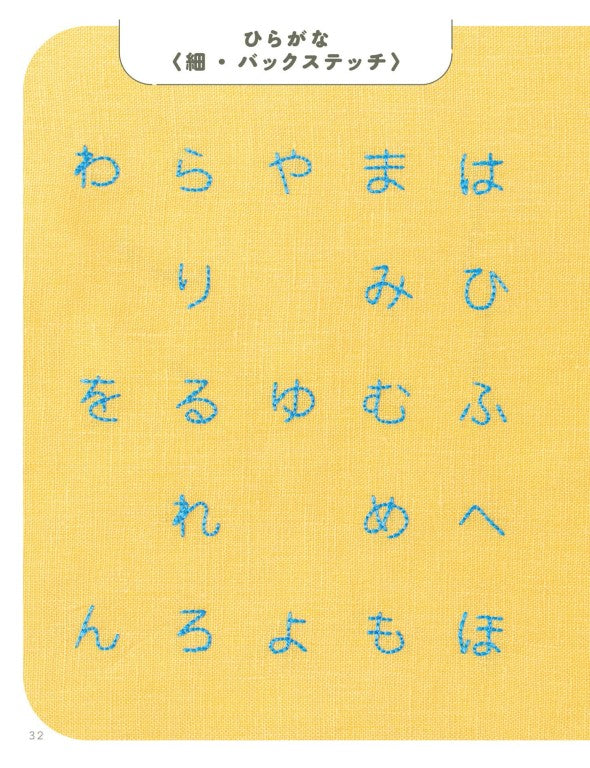 ひらがな
〈細・バックステッチ〉
は ひ ふ へ ほ
ま み む め も
や ゆ よ
ら り る れ ろ
わ を ん
32